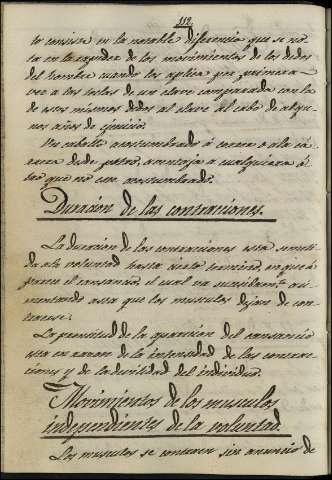 112.
to consiste en la notable diferencia que se no-
ta en la rapidez de los movimientos de los dedos
del hombre cuando los aplica por primera
vez a las teclas de un clave comparada con la
de estos mismos dedos al clave al cabo de algu-
nos años de ejercicio.
Un caballo acostumbrado á correr o a la ca-
rrera desde potro, aventaja a cualquiera ó
tro que no este acostumbrado.
Duracion de las contraciones.
La duracion de las contracciones esta someti-
da a la voluntad hasta cierto termino, en que a
parece el cansancio el cual va sucesibamte. au-
mentando asta que los musculos dejan de con-
traerse.
La prontitud de la aparicion del cansancio
esta en razon de la intensidad de las contrac-
ciones y de la devilidad del individuo.
Movimientos de los musculos
independientes de la voluntad.
Los musculos se contraen sin anuencia de